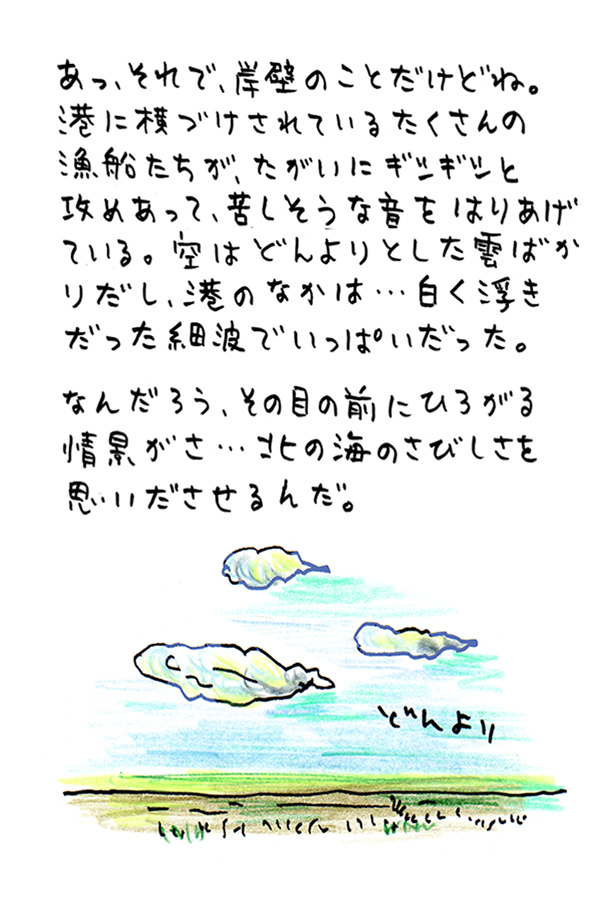 あっ、それで、岸壁のことだけどね。
港に横づけされているたくさんの
漁船たちが、たがいにギシギシと
攻めあって、苦しそうな音をはりあげ
ている。空はどんよりとした雲ばか
りだし、港のなかは…白く浮き
だった細波でいっぱいだった。
なんだろう、その目の前にひろがる
情景がさ…北の海のさびしさを
思いださせるんだ。
どんより